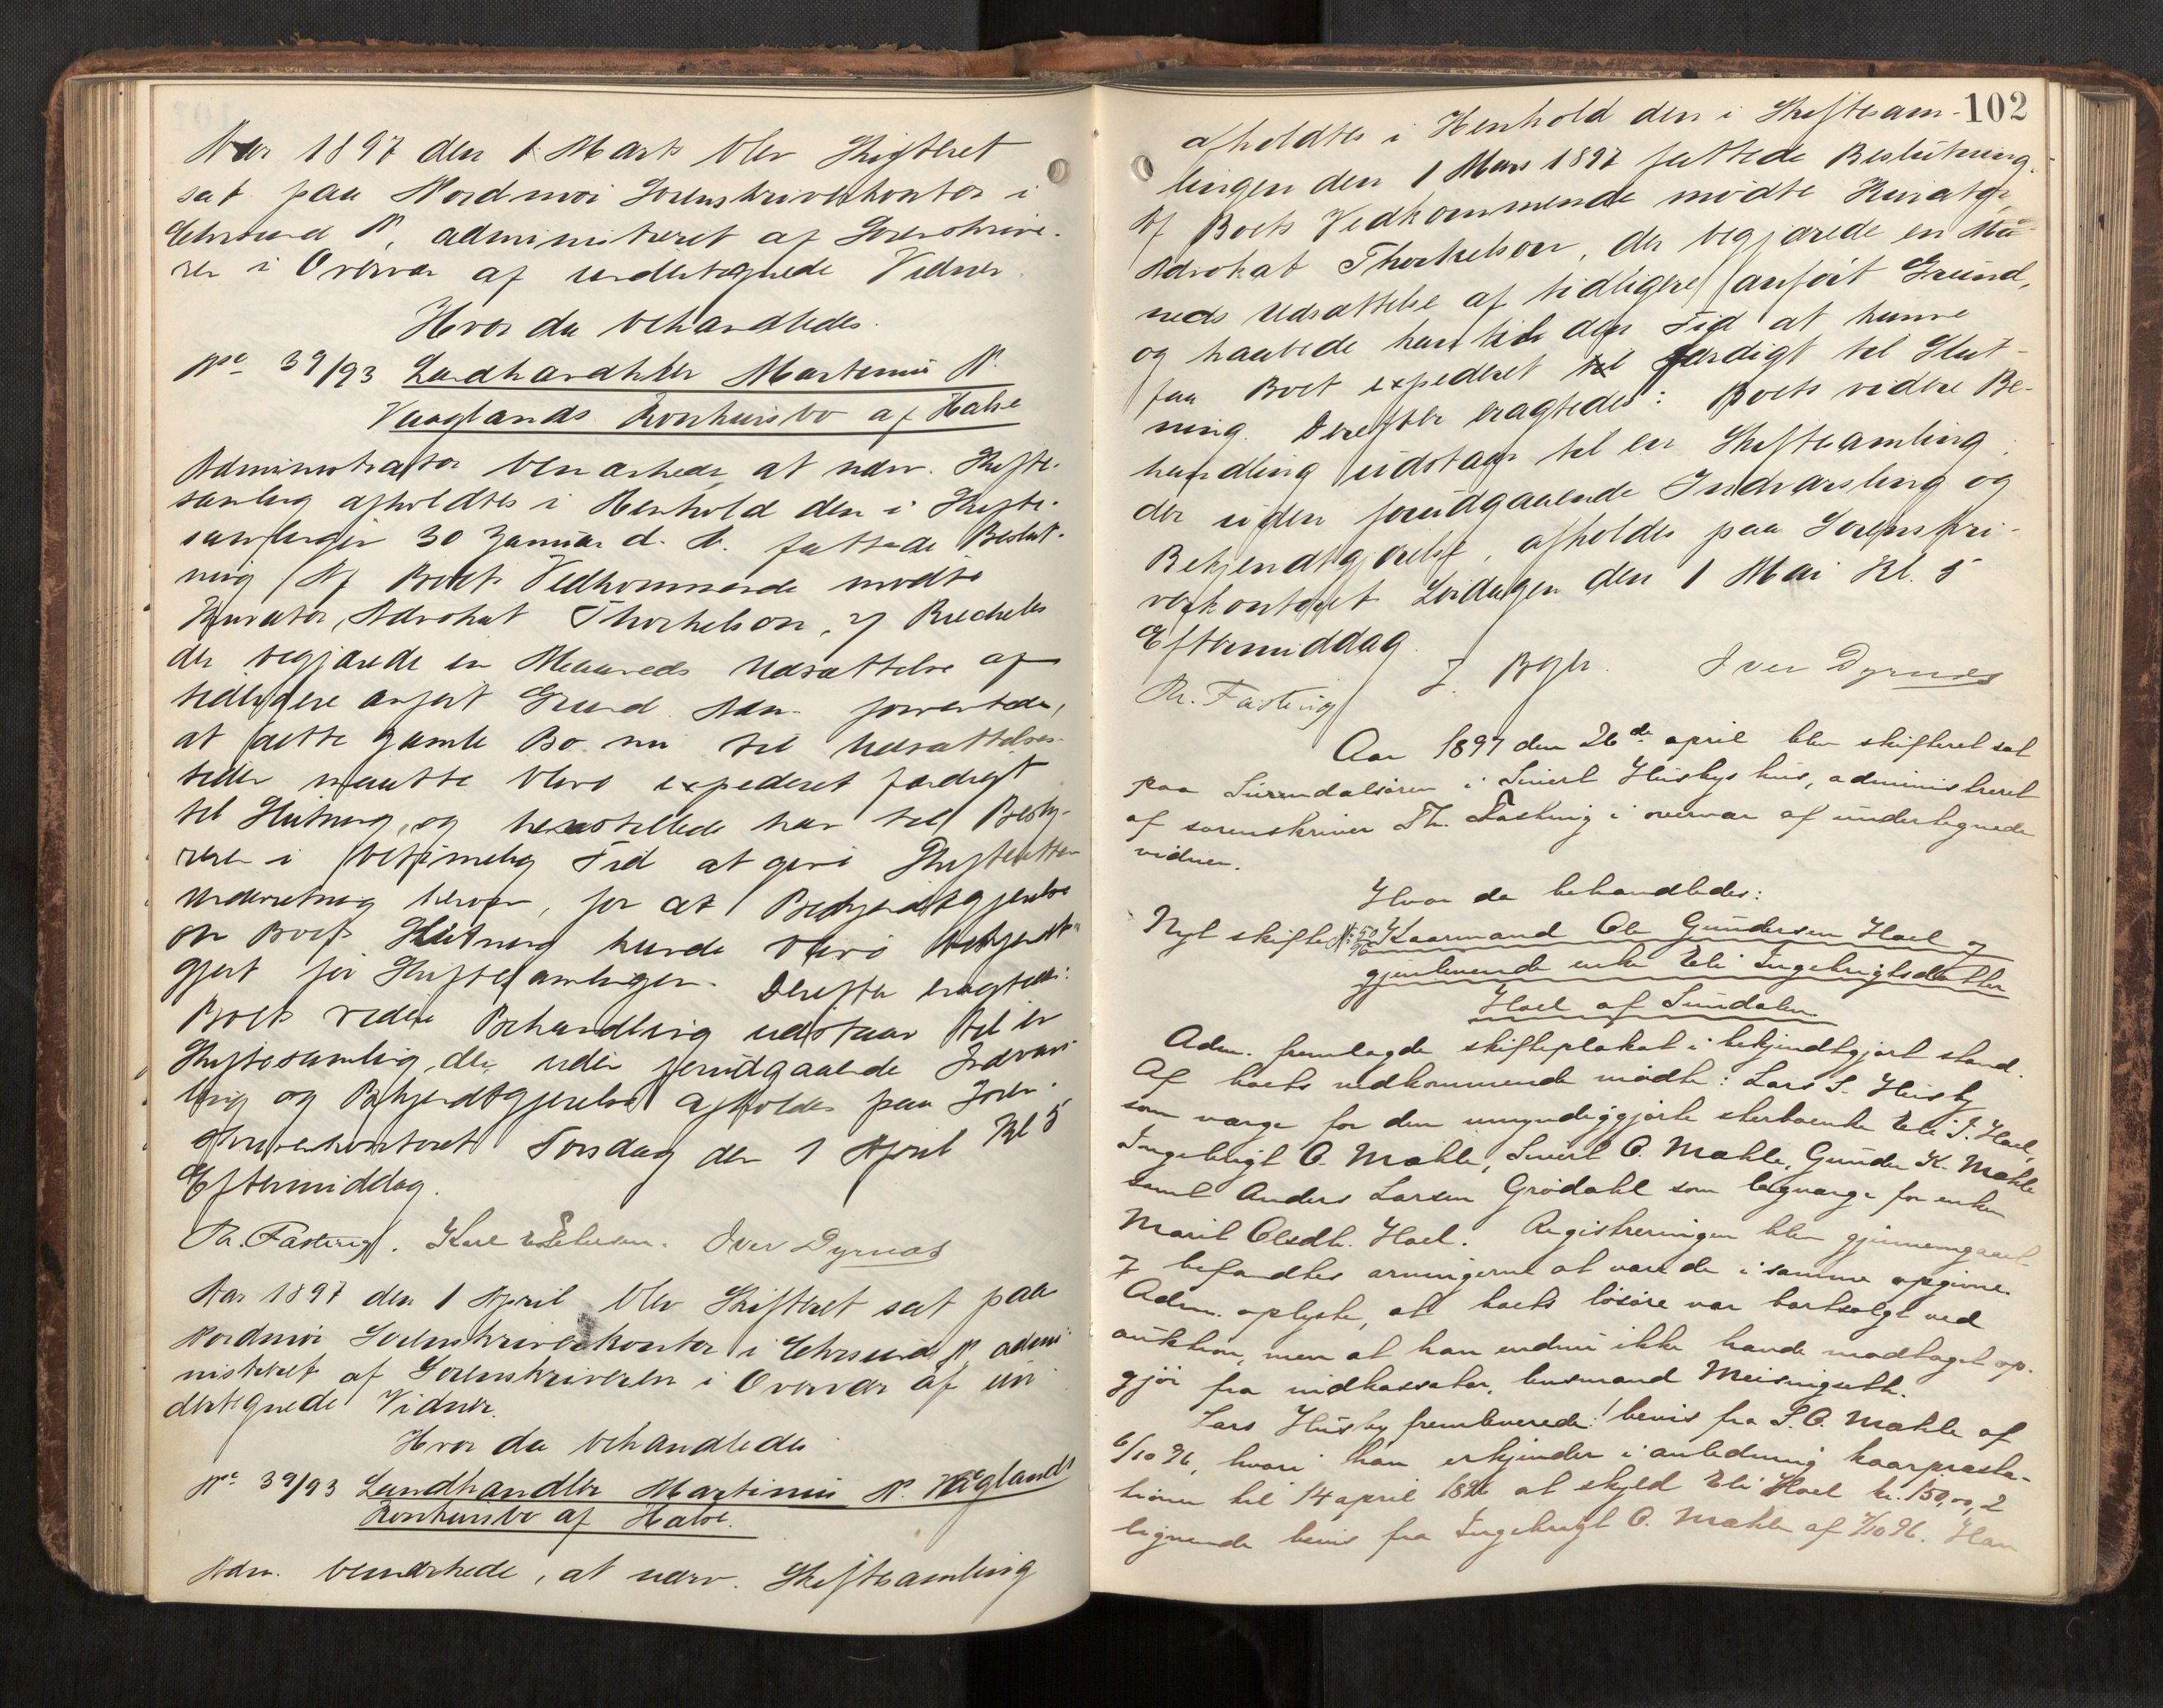 Aar 1897 den 1 Marts blev Skifteret
sat paa Nordmøi Sorenskriverkontor i
Chrsund N, administreret af Sorenskrive-
ren i Overvær af undertegnede Vidner.
Hvor da behandledes.
No 39/93 Landhandler Martinus N.
Vaaglands Konkursbo af Halse
Administrator bemærkede, at nærv. Skifte-
samling afholdtes i Henhold den i Skifte-
samlingen 30 Januar d. A. fattede Beslut-
ning. Af Boets Vedkommende mødte
Kurator, Advokat Thorkelson,
der begjærede en Maaneds Udsættelse af
tidligere anført Grund. Han forventede,
at dette gamle Bo nu til Udsættelses-
tiden maatte blive expederet færdigt
til Slutning, og henstillede han til Besty-
reren i betimelig Tid at give Skifteretten
Underretning herom, for at Bekjendtgjørelse
om Boets Slutning kunde blive bekjendt-
gjort før Skiftesamlingen. Derefter eragtedes:
Boets videre Behandling udstaar til en
Skiftesamling, der uden forudgaaende Indvars-
ling og Bekjendtgjørelse afholdes paa Soren-
skriverkontoret Torsdag den 1 April Kl 5
Eftermiddag.
Th. Fasting. Iver Dyrnæs
Aar 1897 den 1 April blev Skifteret sat paa
Nordmøi Sorenskriverkontor i Chrsund N, admi-
nistreret af Sorenskriveren i Overvær af un-
dertegnede Vidner.
Hvor da behandledes
No 39/93 Landhandler Martinus N. Vaaglands
Konkursbo af Halse.
Adm. bemærkede, at nærv. Skiftesamling
102
afholdtes i Henhold den i Skiftesam-
lingen den 1 Mars 1897 fattede Beslutning.
Af Boets Vedkommende mødte Kurator,
Advokat Thorkelson, der begjærede en Maa-
neds Udsættelse af tidligere anført Grund,
og haabede han til den Tid at kunne
faa Boet expederet færdigt til Slut-
ning. Derefter eragtedes: Boets videre Be-
handling udstaar til en Skiftesamling,
der uden forudgaaende Indvarsling og
Bekjendtgjørelse, afholdes paa Sorenskri-
verkontoret Lørdagen den 1 Mai Kl. 5
Eftermiddag.
Th. Fasting J. Iver Dyrnæs
Aar 1897 den 26de april blev skifteret sat
paa Surendalsøren i Sivert Husbys hus, administreret
af sorenskriver Th. Fasting i overvær af undertegnede
vidner.
Hvor da behandledes:
Nyt skifte No 50/96 Kaarmand Ole Gundersen Hoel og
gjenlevende enke Eli Ingebrigtsdatter
Hoel af Sundalen.
Adm. fremlagde skifteplakat i bekjendtgjort stand.
Af boets vedkommende mødte: Lars S. Husby
som værge for den umyndiggjorte sterboenke Eli I. Hoel,
Ingebrigt O. Mæhle, Sivert O. Mæhle, Gunder K. Mæhle
samt Anders Larsen Grødahl som lagværge for enken
Marit Olsdtr. Hoel. Registreringen blev gjennemgaaet
& befandtes arvingerne at være de i samme opgivne.
Adm. oplyste, at boets løsøre var bortsolgt ved
auktion, men at han endnu ikke havde modtaget op-
gjør fra indkassator, lensmand Meisingseth.
Lars Husby fremleverede: 1 bevis fra S. O. Mæhle af
6/10 96, hvori han erkjender i anledning kaarpræsta-
tioner til 14 april 1896 at skyld Eli Hoel kr. 150,00, 2
lignende bevis fra Ingebrigt O. Mæhle af 7/10 96. Han